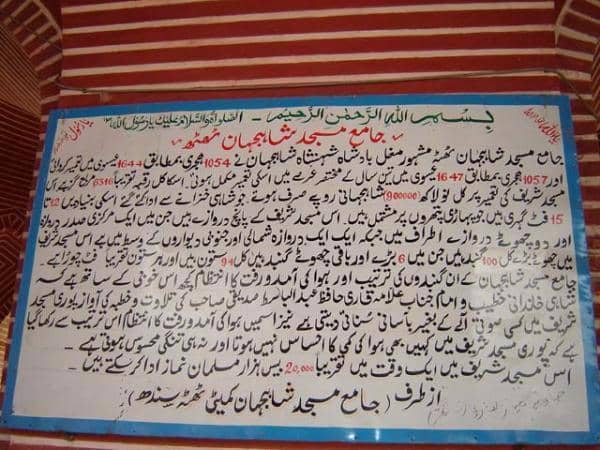 بِسْمِ اللهِ الرَّحْمٰنِ الرَّحِیْمِ - الصلوٰۃ والسلام علیک یا رسول اللہ
جامع مسجد شاہجہان ٹھٹھہ
جامع مسجد شاہجہان ٹھٹھہ مشہور مغل بادشاہ شہنشاہ شاہجہان نے 1054 ہجری بمطابق 1644 عیسوی میں تعمیر کروائی
اور 1057 ہجری بمطابق 1647 عیسوی میں تین سال کے مختصر عرصے میں اسکی تعمیر مکمل ہوئی۔ اسکا کل رقبہ تقریباً 6316 مربع گز ہے اس
مسجد شریف کی تعمیر پر کل نو لاکھ (900000) شاہجہانی روپے صرف ہوئے۔ جو شاہی خزانے سے ادا کئے گئے اسکی بنیادیں 12 سے
15 فٹ گہری ہیں جو پہاڑی پتھروں پر مشتمل ہیں۔ اس مسجد شریف کے پانچ دروازے ہیں جن میں ایک مرکزی صدر دروازہ
اور دو چھوٹے دروازے اطراف میں جبکہ ایک ایک دروازہ شمالی اور جنوبی دیواروں کے وسط میں ہے اس مسجد شریف
میں چھوٹے بڑے کل 100 گنبد ہیں جن میں 6 بڑے اور باقی چھوٹے گنبد ہیں کل 94 ستون ہیں اور ہر ستون تقریباً فٹ چوڑا ہے۔
جامع مسجد شاہجہان کے ان گنبدوں کی ترتیب اور ہوا کی آمد و رفت کا انتظام کچھ اس خوبی کے ساتھ ہے کہ
شاہی خاندانی خطیب و امام جناب علامہ قاری حافظ عبدالباسط صدیقی صاحب کی تلاوت و خطبہ کی آواز پوری مسجد
شریف میں کسی صوتی آلے کے بغیر بآسانی سنائی دیتی ہے نیز اسمیں ہوا کی آمد و رفت کا انتظام اس ترتیب سے رکھا گیا
ہے کہ پوری مسجد شریف میں کہیں بھی ہوا کی کمی کا احساس نہیں ہوتا اور نہ ہی تنگی محسوس ہوتی ہے۔
اس مسجد شریف میں ایک وقت میں تقریباً 20,000 بیس ہزار مسلمان نماز ادا کر سکتے ہیں۔
از طرف (جامع مسجد شاہجہان کمیٹی ٹھٹہ سندھ)